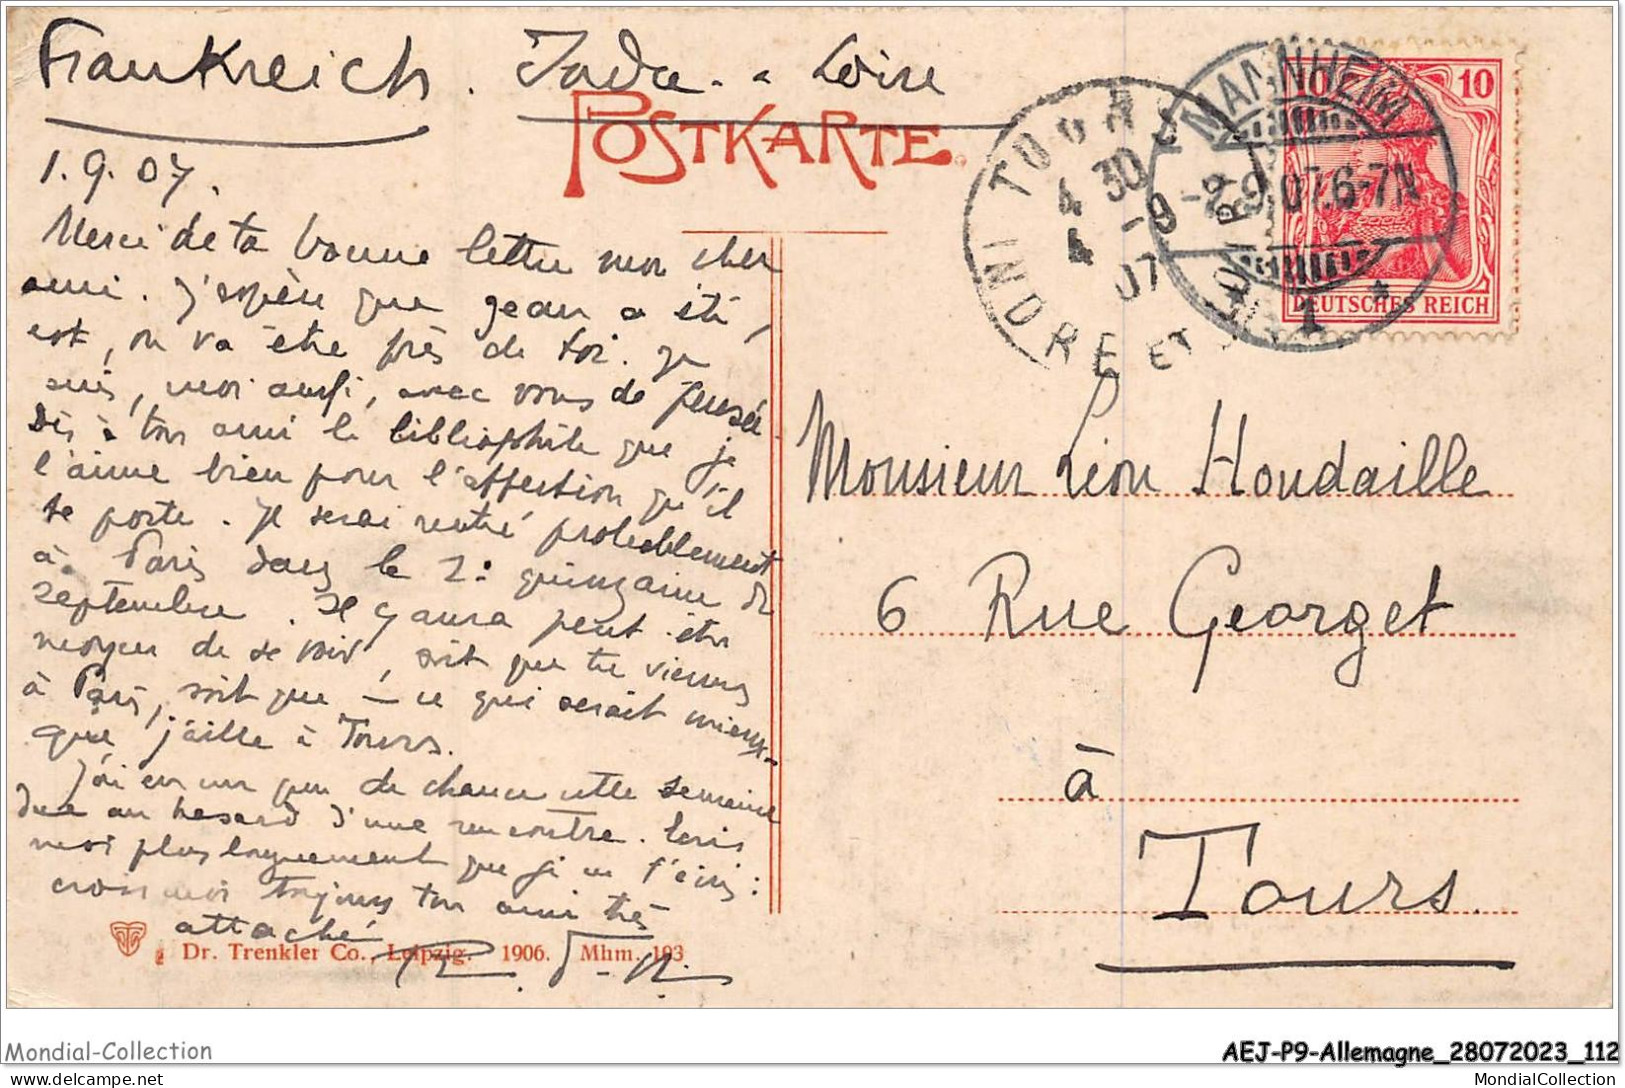 Frankreich. Indre-&-Loire
POSTKARTE.
1.9.07.
Merci de ta bonne lettre mon cher
ami. J'espère que Jean a été,
est, ou va être près de toi. Je
suis, moi aussi, avec vous de pensée.
Dis à ton ami le bibliophile que je
l'aime bien pour l'affection qu'il
te porte. Je serai rentré probablement
à Paris dans le 2e quinzaine de
septembre. Il y aura peut-être
moyen de se voir, soit que tu viennes
à Paris, soit que – ce qui serait mieux –
que j'aille à Tours.
J'ai eu un peu de chance cette semaine
due au hasard d'une rencontre.
moi plus longuement que je ne t'écris:
crois moi toujours ton ami très
attaché
Dr. Trenkler Co., Leipzig. 1906. Mhm. 193
TOURS
4 30
4 -9
07
INDRE ET LOIRE
MANNHEIM
-2.9.07.6-7N
* 1 *
10 10
DEUTSCHES REICH
Monsieur Léon Houdaille
6 Rue Georget
à
Tours.
Mondial-Collection
AEJ-P9-Allemagne_28072023_112
delcampe.net
MondialCollection